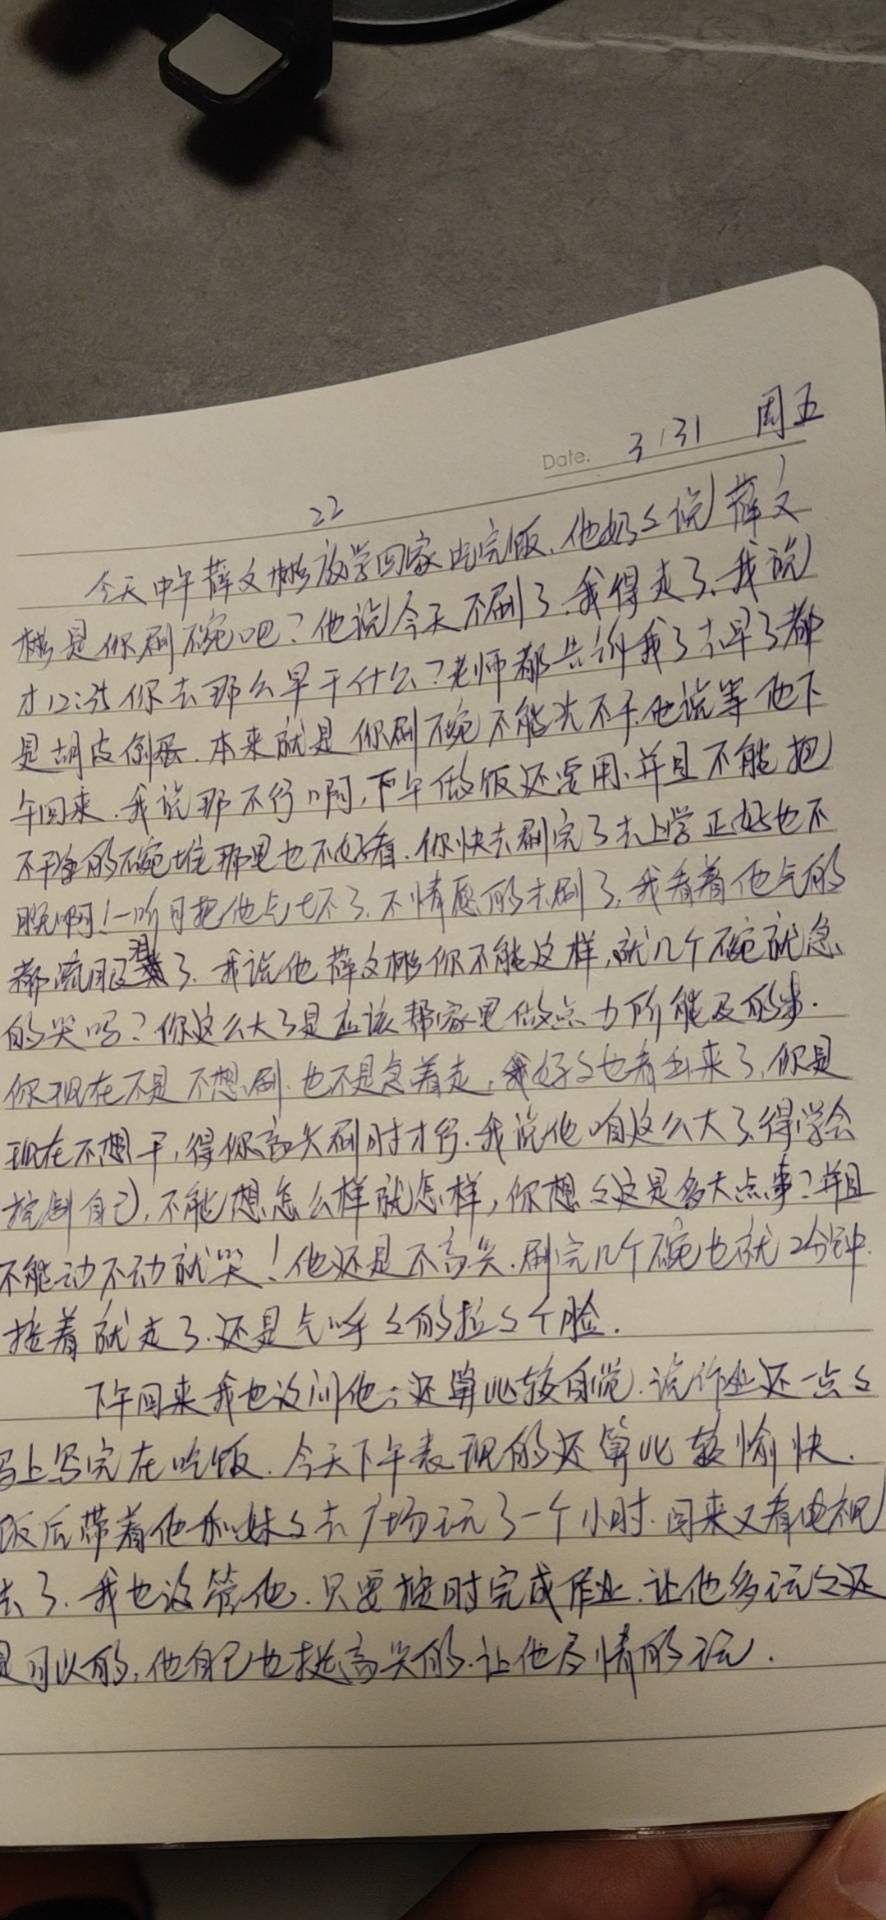 Date. 3/31 周五
22
今天中午薛文彬放学回家吃完饭,他奶々说薛文
彬是你刷碗吧?他说今天不刷了,我得走了,我说
才12:35你去那么早干什么?老师都告诉我了去早了都
是胡皮倒展.本来就是你刷碗不能光不干,他说等他下
午回来.我说那不行啊,下午做饭还要用,并且不能把
不干净的碗堆那里也不好看.你快去刷完了去上学正好也不
晚啊!一听可把他气坏了,不情愿的去刷了,我看着他气的
都流眼泪了.我说他薛文彬你不能这样,就几个碗就急
的哭吗?你这么大了是应该帮家里做点力所能及的事.
你现在不是不想刷,也不是急着走,我好々也看出来了,你是
现在不想干,得你高兴刷时才行.我说他咱这么大了,得学会
控制自己,不能想怎么样就怎样,你想々这是多大点事?并且
不能动不动就哭!他还是不高兴.刷完几个碗也就2分钟.
接着就走了.还是气呼々的拉々个脸.
下午回来我也没训他,还算比较自觉.说作业还一点々
马上写完在吃饭.今天下午表现的还算比较愉快.
饭后带着他和妹々去广场玩了一个小时.回来又看电视
去了.我也没管他.只要按时完成作业.让他多玩々还
是可以的,他自己也挺高兴的.让他尽情的玩.